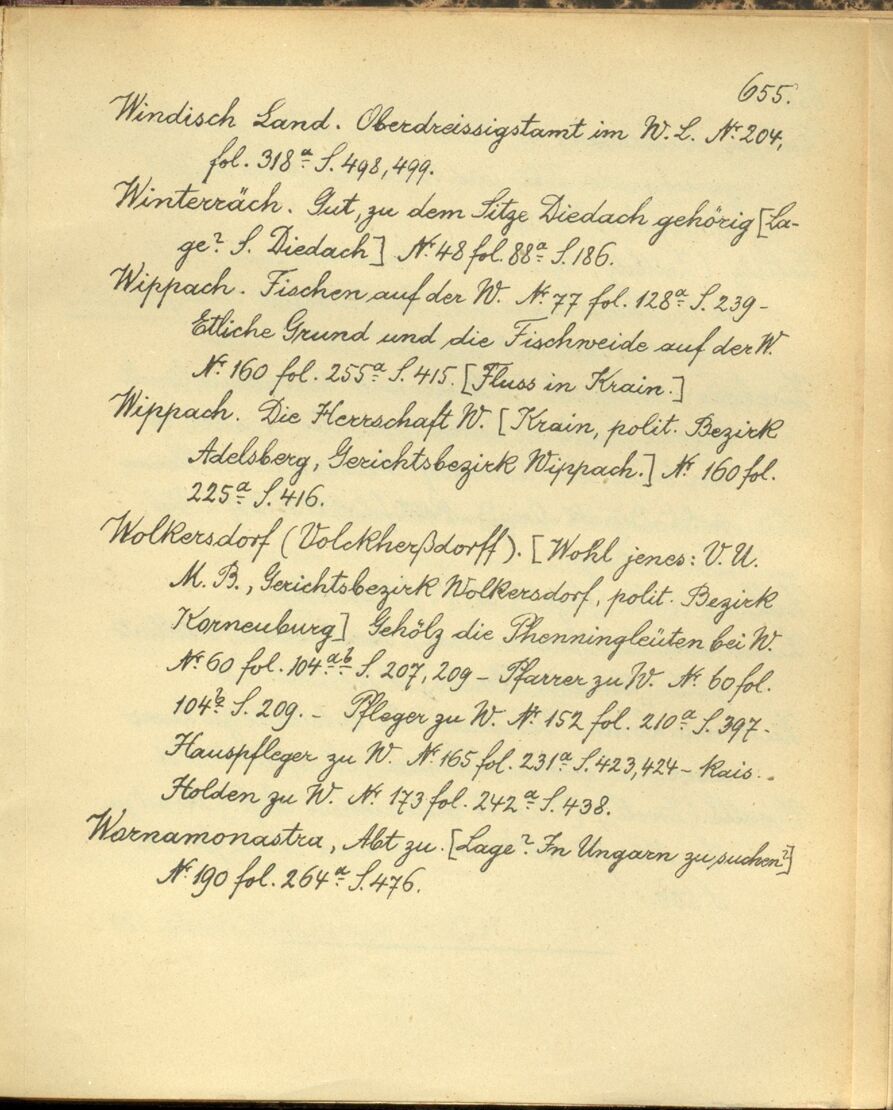 655.
Windisch Land. Oberdreissigstamt im W. L. Nr. 204,
fol. 318a S. 498, 499.
Winterräch. Gut, zu dem Sitze Diedach gehörig [La-
ge? S. Diedach] Nr. 48 fol. 88a S. 186.
Wippach. Fischen auf der W. Nr. 77 fol. 128a S. 239 –
Etliche Grund und die Fischweide auf der W.
Nr. 160 fol. 255a S. 415. [Fluss in Krain.]
Wippach. Die Herrschaft W. [Krain, polit. Bezirk
Adelsberg, Gerichtsbezirk Wippach.] Nr. 160 fol.
225a S. 416.
Wolkersdorf (Volckherßdorff). [Wohl jenes: V. U.
M. B., Gerichtsbezirk Wolkersdorf, polit. Bezirk
Korneuburg] Gehölz die Phenningleüten bei W.
Nr. 60 fol. 104a b S. 207, 209 – Pfarrer zu W. Nr. 60 fol.
104b S. 209. – Pfleger zu W. Nr. 152 fol. 210a S. 397 –
Hauspfleger zu W. Nr. 165 fol. 231a S. 423, 424 – kais.
Holden zu W. Nr. 173 fol. 242a S. 438.
Wornamonastra, Abt zu. [Lage? In Ungarn zu suchen?]
Nr. 190 fol. 264a S. 476.